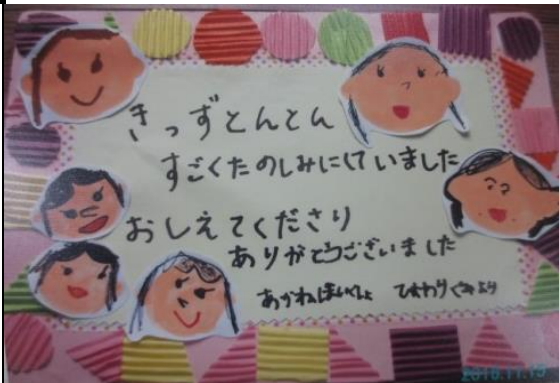 きっずとんとん
すごくたのしみにしていました
おしえてくださり
ありがとうございました
あかねほいくしょ ひまわりぐみより
2010.11.15